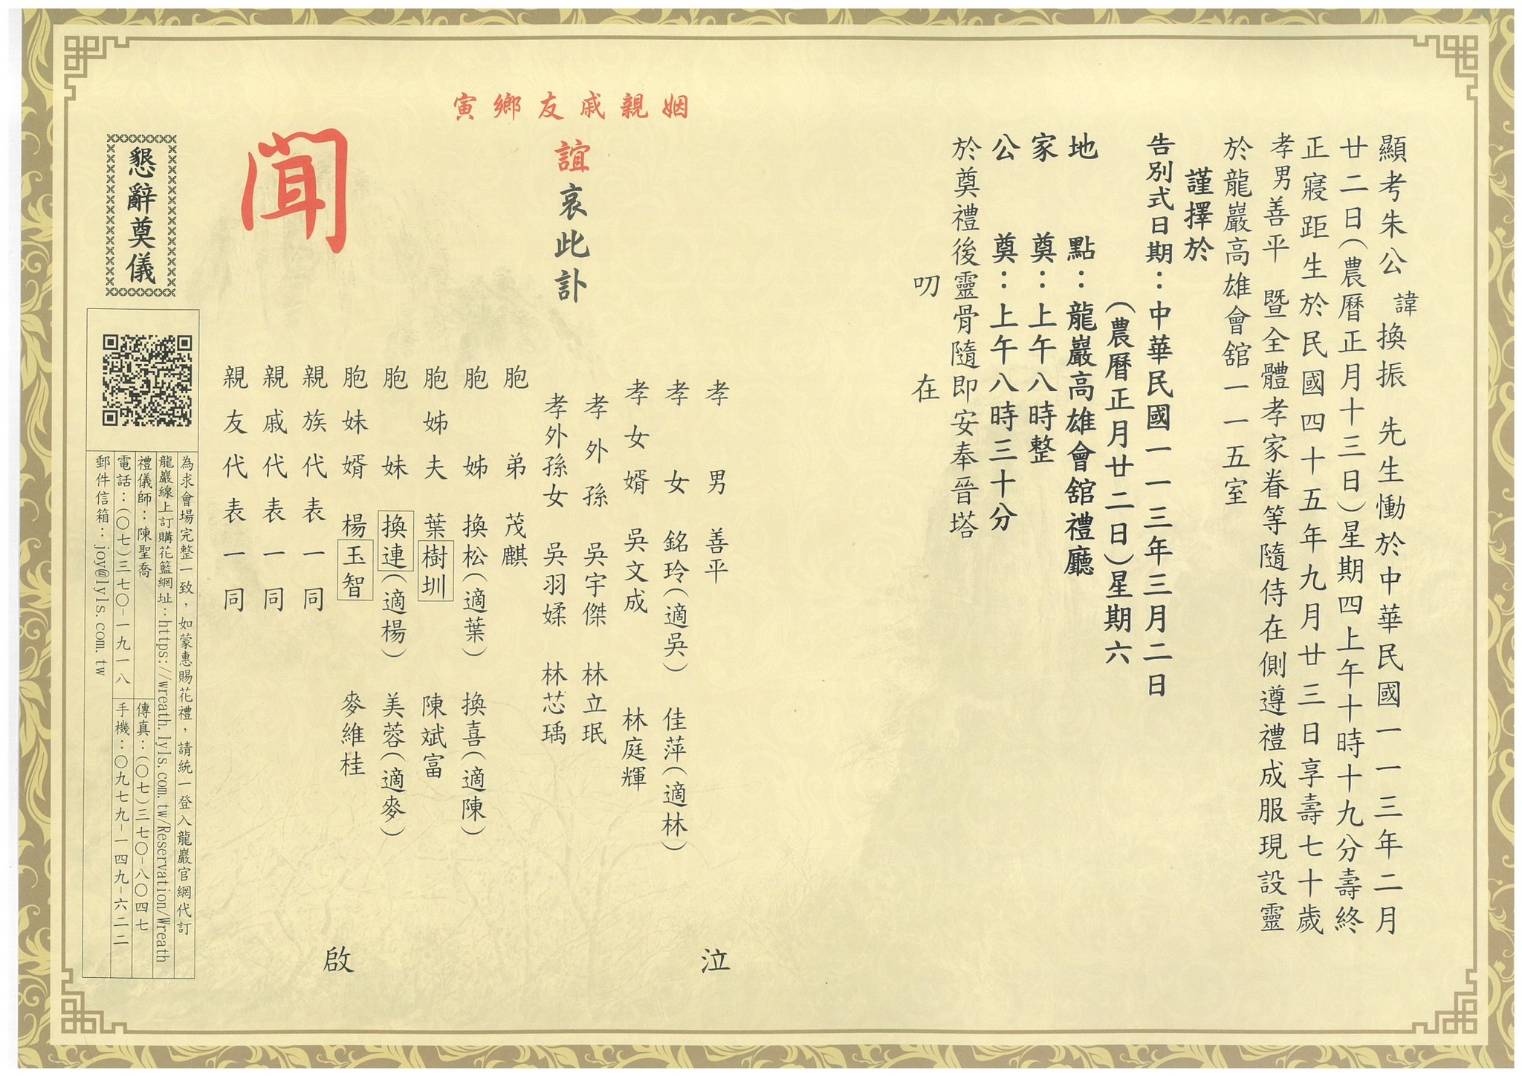 顯考朱公諱換振 先生慟於中華民國一一三年二月
廿二日(農曆正月十三日)星期四上午十時十九分壽終
正寢距生於民國四十五年九月廿三日享壽七十歲
孝男善平 暨全體孝家眷等隨侍在側遵禮成服現設靈
於龍巖高雄會舘一一五室
謹擇於
告別式日期:中華民國一一三年三月二日
(農曆正月廿二日)星期六
地 點:龍巖高雄會舘禮廳
家 奠:上午八時整
公 奠:上午八時三十分
於奠禮後靈骨隨即安奉晉塔
叨 在
姻親戚友鄉寅
誼哀此訃
聞
孝男 善平
孝女 銘玲(適吳) 佳萍(適林)
孝女婿 吳文成 林庭輝
孝外孫 吳宇傑 林立珉
孝外孫女 吳羽媃 林芯瑀
泣
胞弟 茂麒
胞姊 換松(適葉) 換喜(適陳)
胞姊夫 葉樹圳 陳斌富
胞妹 換連(適楊) 美蓉(適麥)
胞妹婿 楊玉智 麥維桂
親族代表一同
親戚代表一同
親友代表一同
啟
懇辭奠儀
為求會場完整一致,如蒙惠賜花禮,請統一登入龍巖官網代訂
龍巖線上訂購花籃網址:https://wreath.lyls.com.tw/Reservation/Wreath
禮儀師:陳聖喬
傳真:(〇七)三七〇-八〇四七
電話:(〇七)三七〇-一九一八
手機:〇九七九-一四九-六二二
郵件信箱:joy@lyls.com.tw